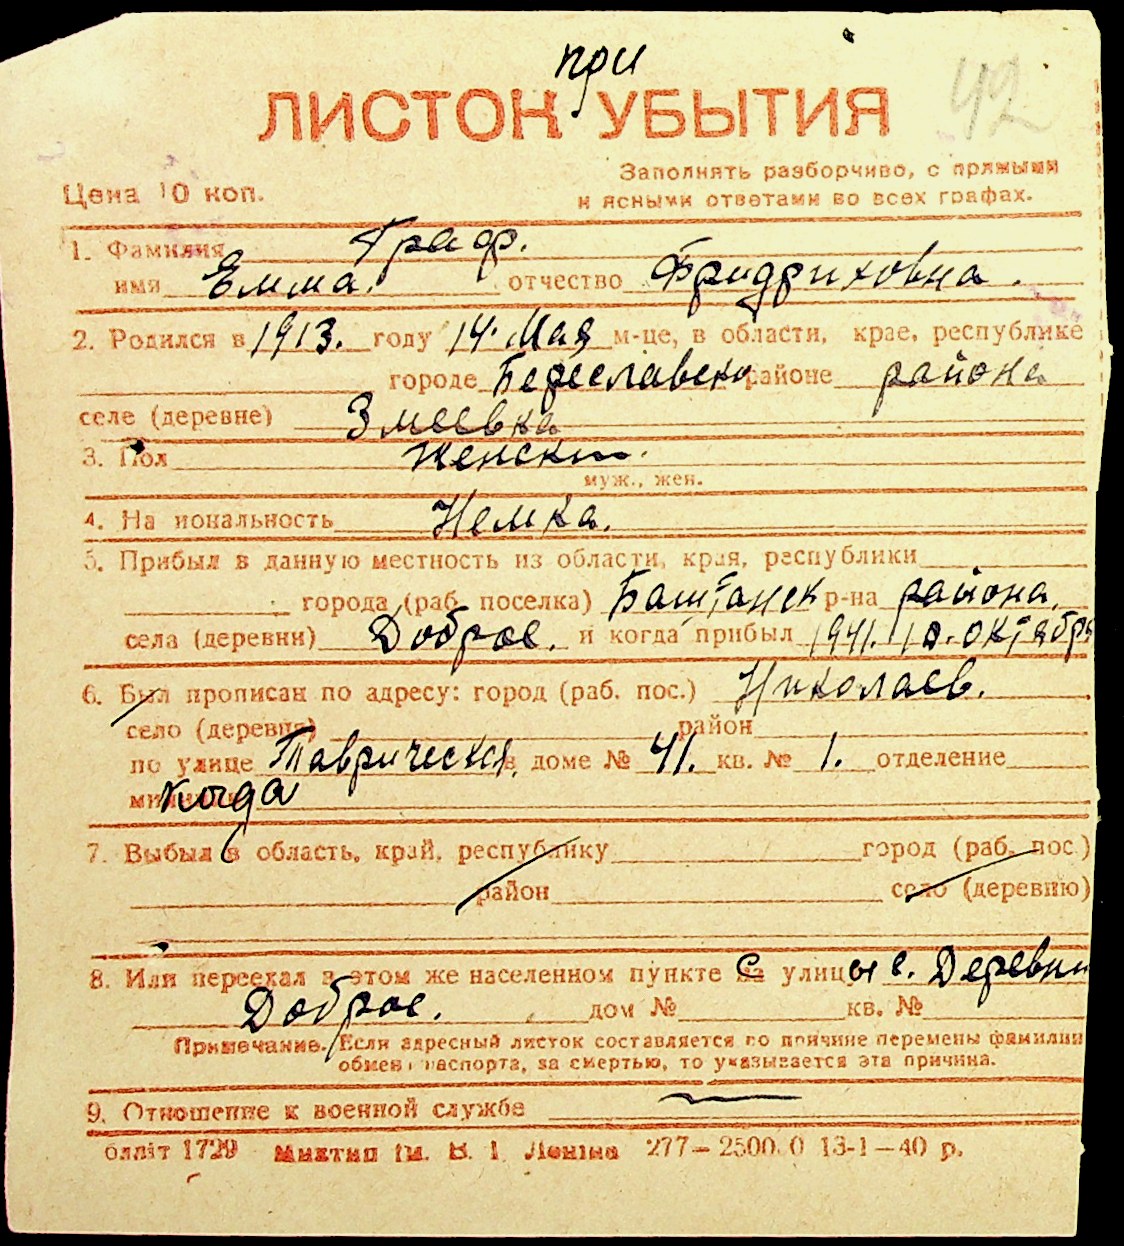 при
ЛИСТОК УБЫТИЯ
42
Заполнять разборчиво, с прямыми
Цена 10 коп.
и ясными ответами во всех графах.
1. Фамилия Граф.
имя Емма. отчество Фридриховна.
2. Родился в 1913. году 14. Мая м-це, в области, крае, республике
городе Береславско районе района
селе (деревне) Змеевка
3. Пол женский.
муж., жен.
4. На иональность Немка.
5. Прибыл в данную местность из области, края, республики
города (раб. поселка) Баштанск р-на района.
села (деревни) Доброе. и когда прибыл 1941. 10. октября
6. Был прописан по адресу: город (раб. пос.) Николаев.
село (деревня) район
по улице Таврическая, в доме № 41. кв. № 1. отделение
милиции когда
7. Выбыл в область, край, республику город (раб. пос.)
район село (деревню)
8. Или переехал в этом же населенном пункте с на улицы с. Деревни
Доброе. дом № кв. №
Примечание. Если адресный листок составляется по причине перемены фамилии
обмен паспорта, за смертью, то указывается эта причина.
9. Отношение к военной службе
блліт 1729 Миктип ім. В. І. Леніна 277—2500.0 13-1—40 р.